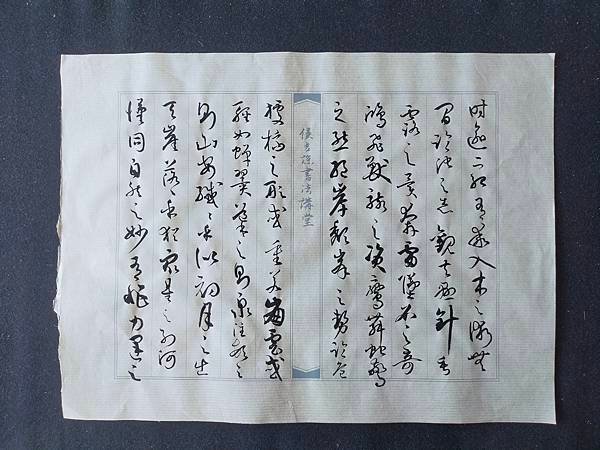 時逾二紀有乖入木之術無
間臨池之志觀夫懸針垂
露之異奔雷墜石之奇
鴻飛獸駭之資鸞舞蛇驚
之態絕岸頹峰之勢臨危
侯吉諒書法講堂
據槁之形或重若崩雲或
輕如蟬翼導之則泉注頓之
則山安纖纖乎似初月之出
天崖落落乎猶眾星之列河
漢同自然之妙有非力運之